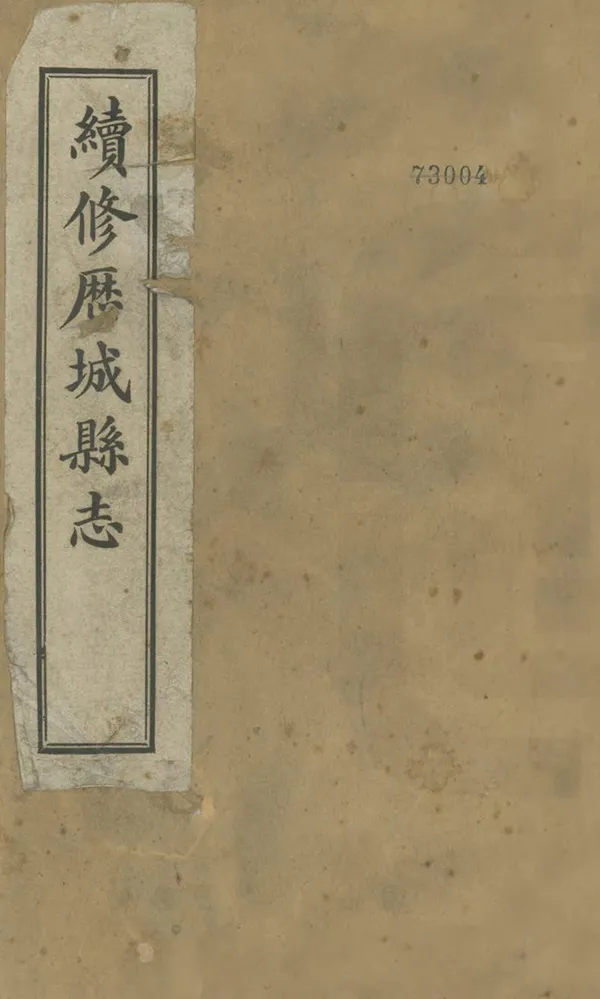 續修歴城縣志
73004